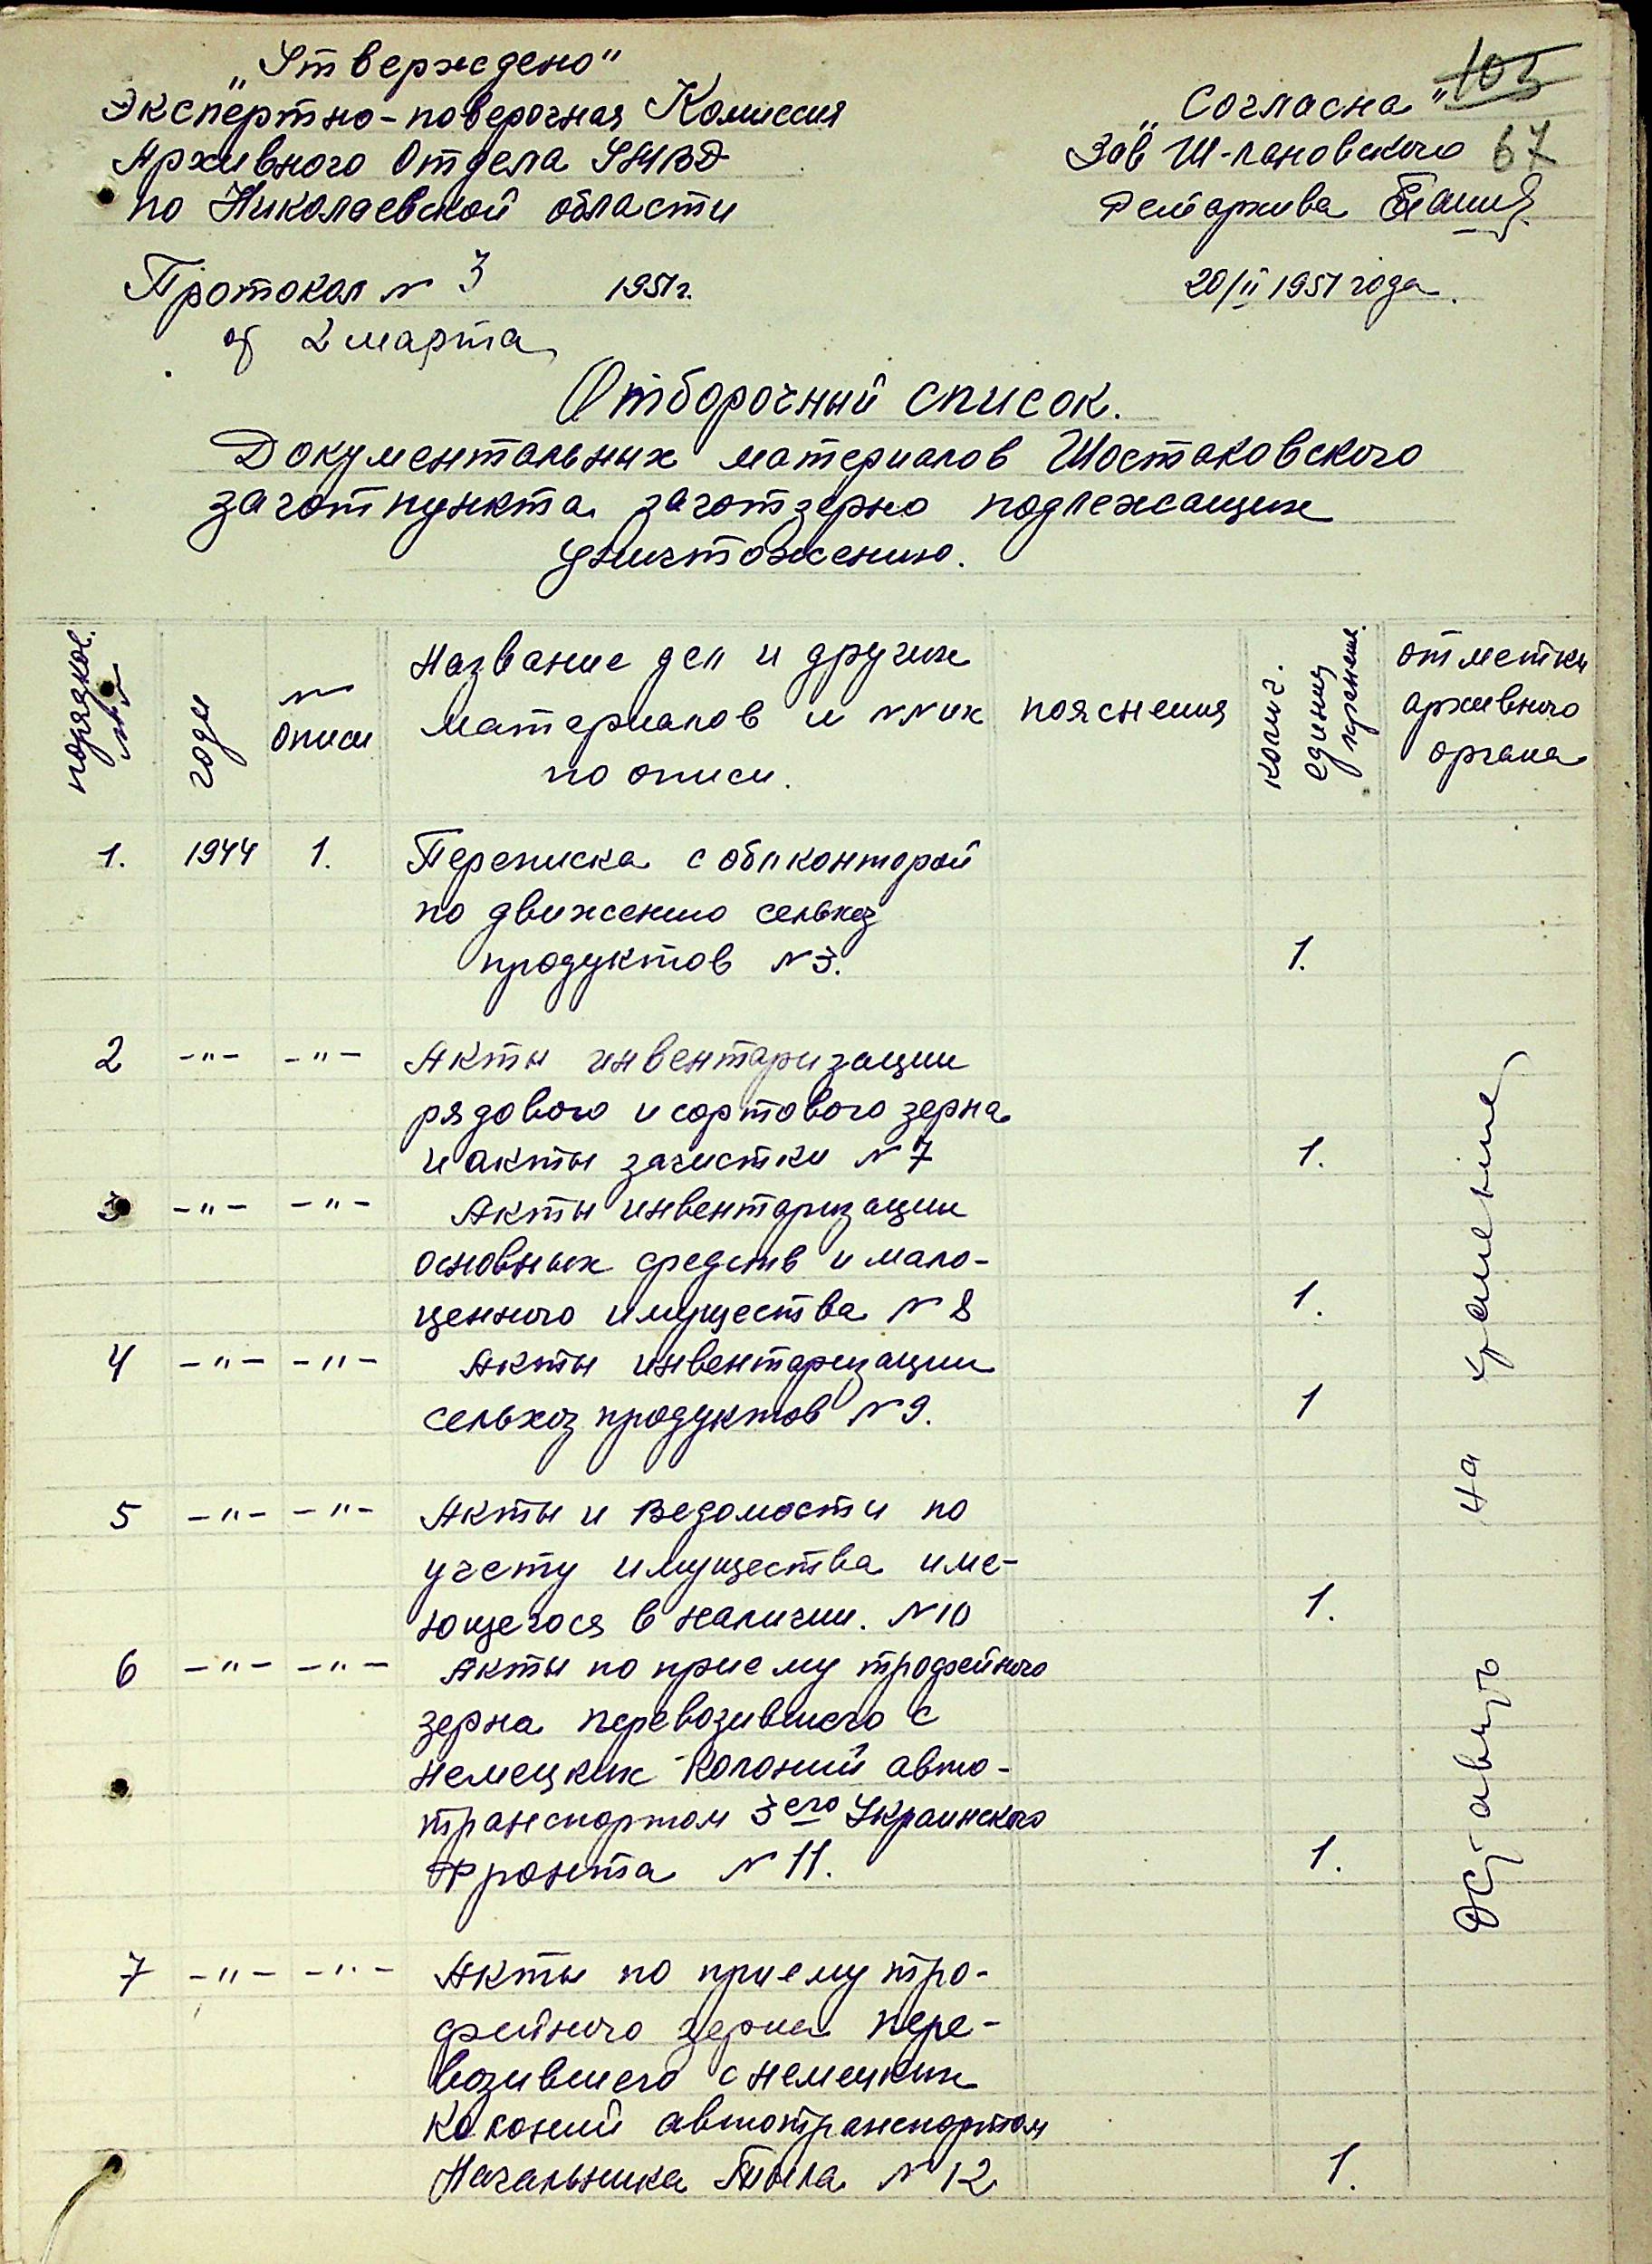 „Утверждено"
Экспертно-поверочная Комиссия
Архивного Отдела УМВД
по Николаевской области
Протокол № 3 1951г.
от 2 марта
105
„Согласна"
Зав Ш-лановского 67
Рейархива
20/II 1951 года.
Отборочный список.
Документальных материалов Шостаковского
заготпункта заготзерно подлежащих
уничтожению.
порядков. №№
годы
№ описи
Название дел и других
материалов и №№ их
по описи.
пояснения
колич. единиц хранения.
отметки
архивного
органа
1. 1944 1. Переписка с облконторой
по движению сельхоз
продуктов №3. 1.
2 -"- -"- Акты инвентаризации
рядового и сортового зерна
и акты зачистки №7 1.
3 -"- -"- Акты инвентаризации
основных средств и мало-
ценного имущества №8 1.
4 -"- -"- Акты инвентаризации
сельхоз продуктов №9. 1
5 -"- -"- Акты и Ведомости по
учету имущества име-
ющегося в наличии. №10 1.
6 -"- -"- Акты по приему трофейного
зерна перевозившего с
немецких колоний авто-
транспортом 3его Украинского
Фронта №11. 1.
7 -"- -"- Акты по приему тро-
фейного зерна пере-
возившего с немецких
колоний автотранспортом
Начальника Тыла №12 1.
Оставить на хранение